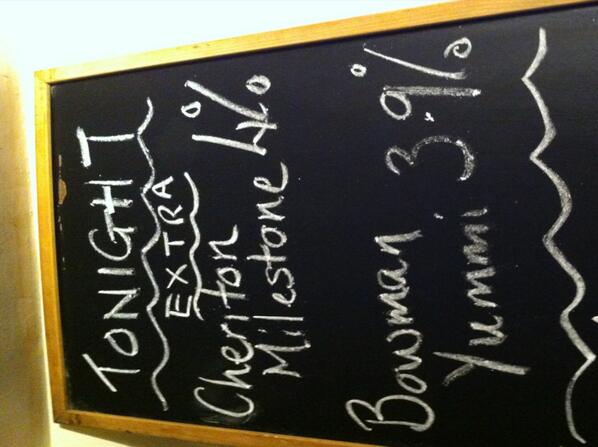 TONIGHT
EXTRA
Cheriton
Milestone 4%
Bowman 3.9%
Yummi